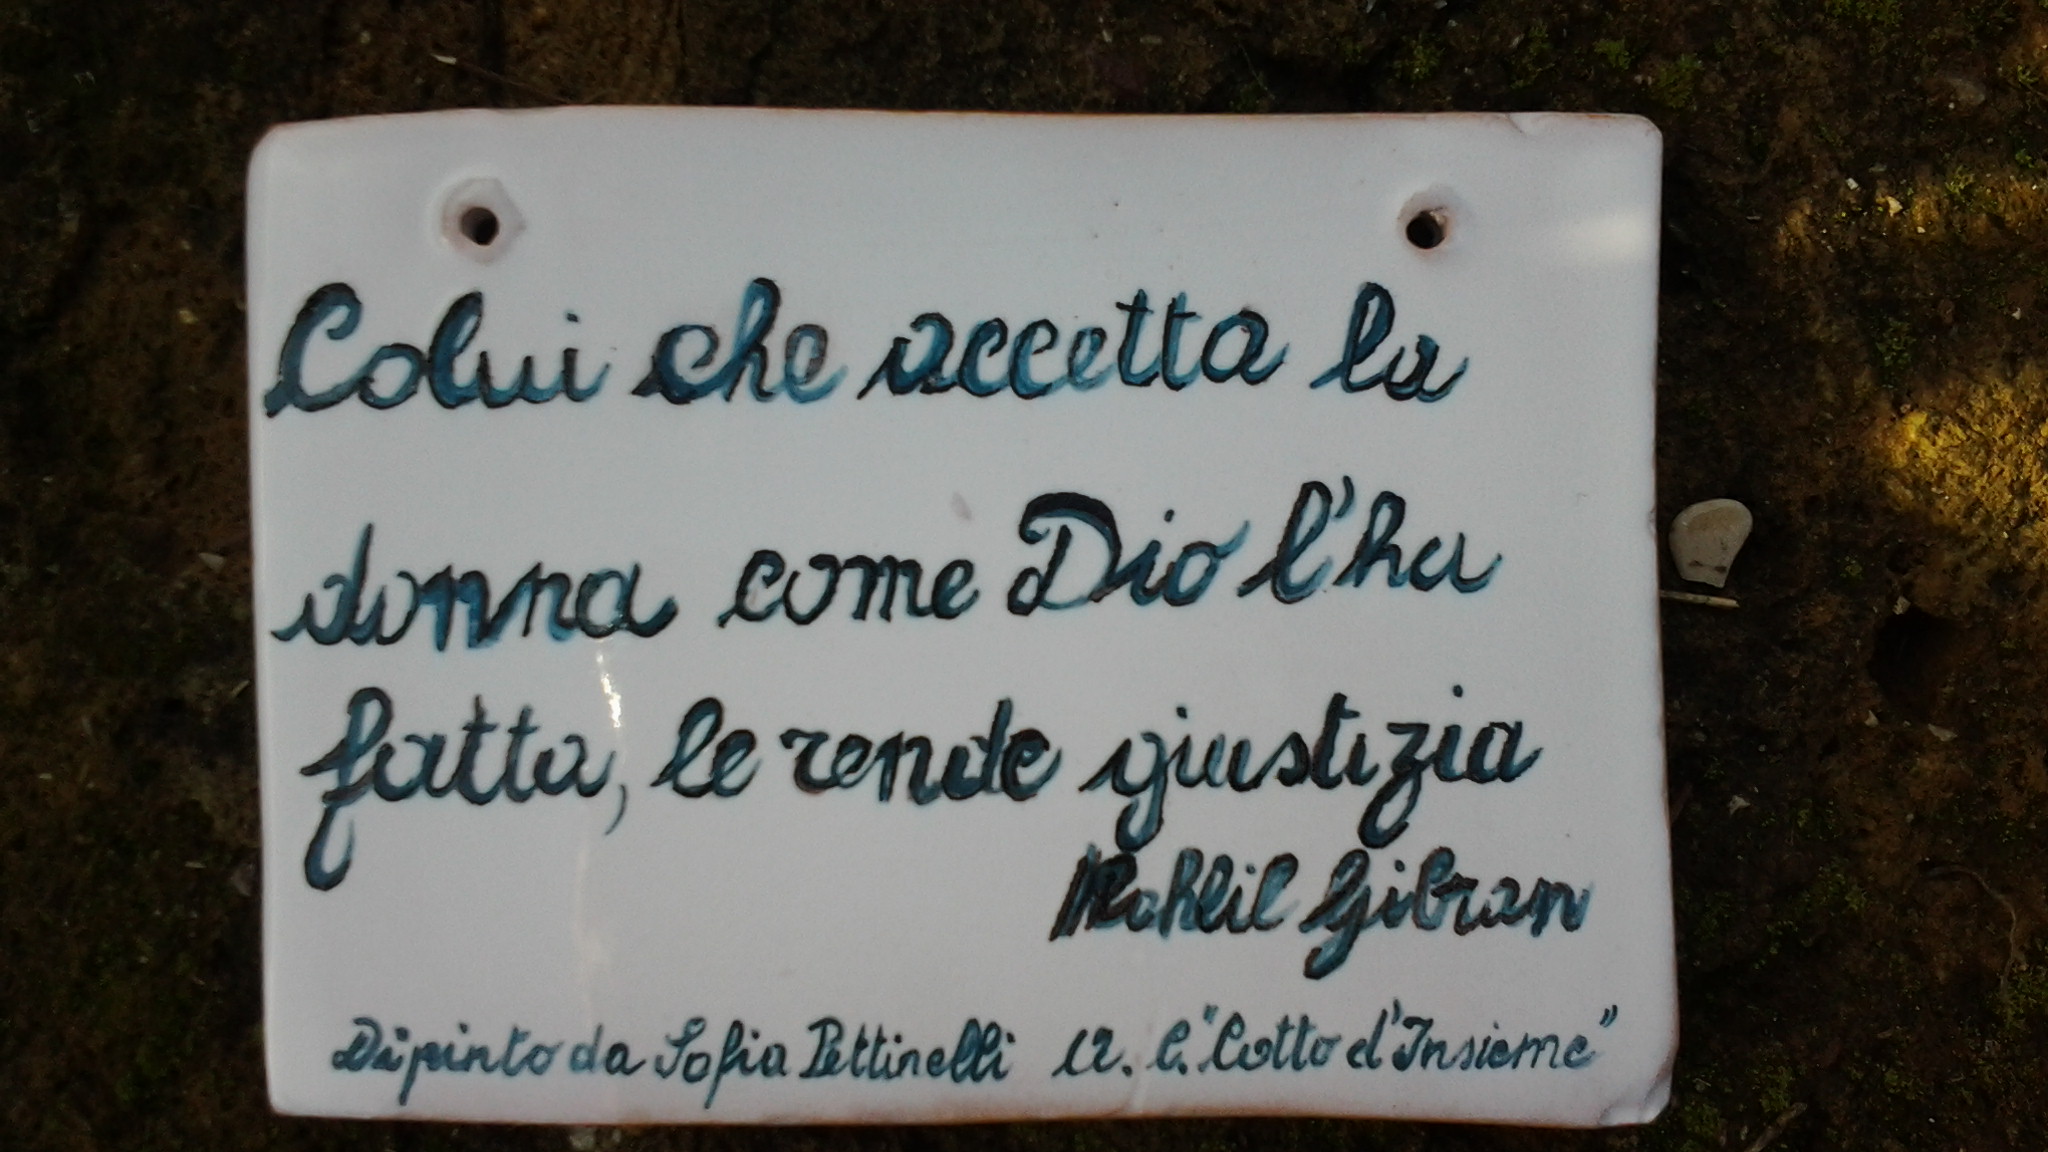 Colui che accetta la
donna come Dio l'ha
fatta, le rende giustizia
Kahlil Gibran
Dipinto da Sofia Pettinelli A. C. "Cotto d'Insieme"